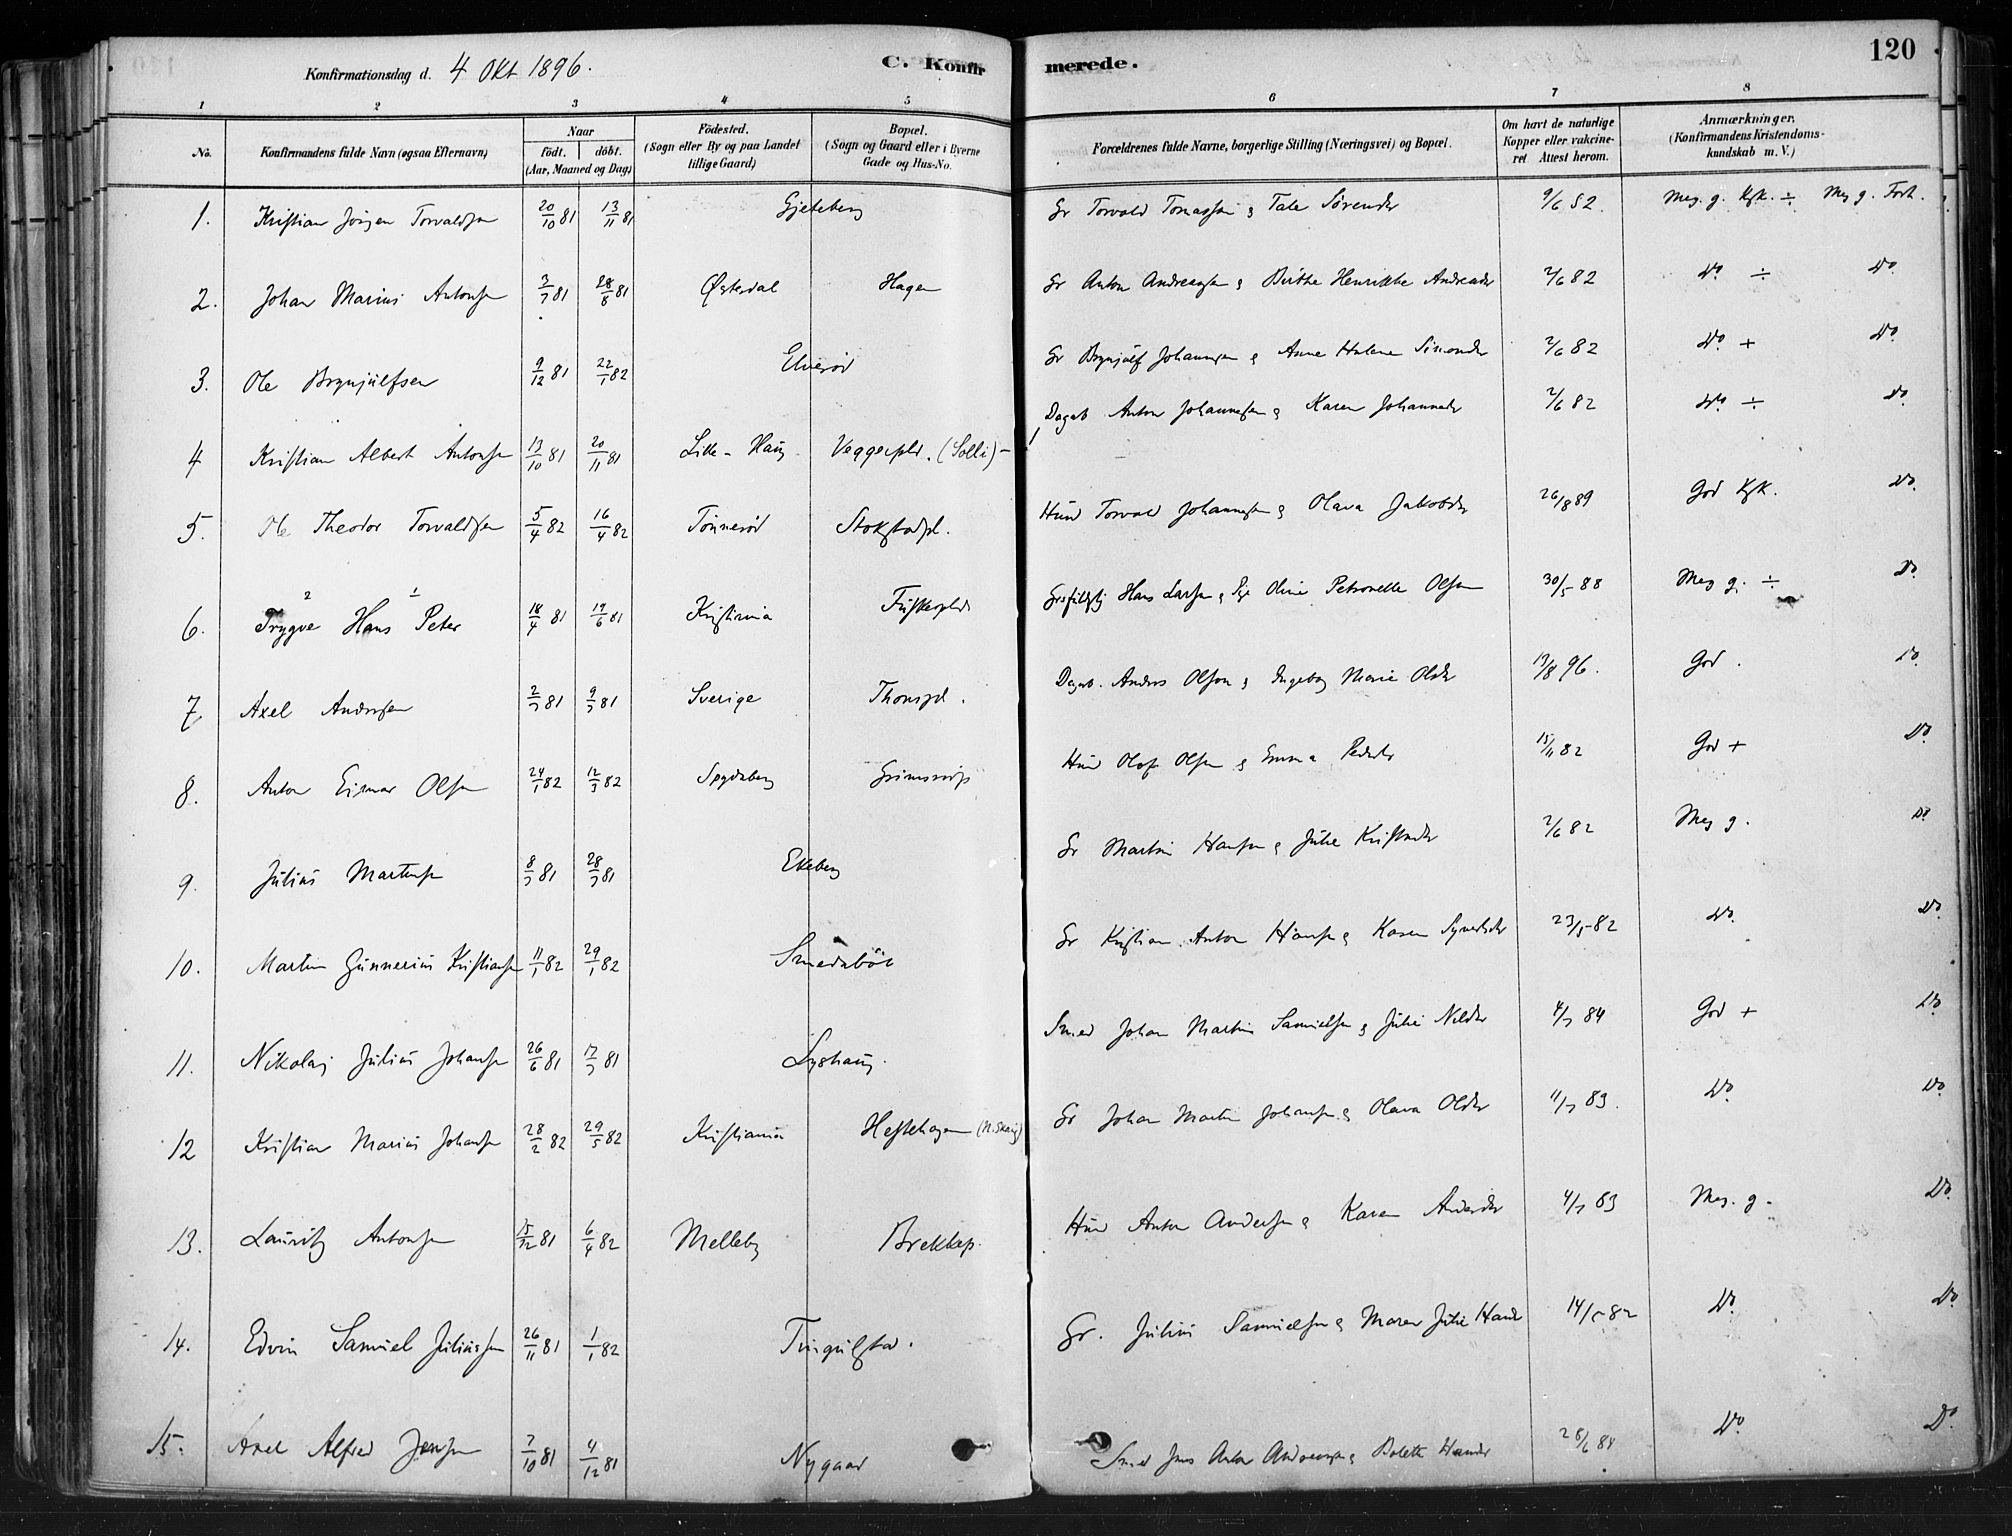 120
Konfirmationsdag d. 4 Okt 1896.
C. Konfirmerede.
1 2 3 4 5 6 7 8
No.
Konfirmandens fulde Navn (ogsaa Efternavn)
Naar
født. døbt.
(Aar, Maaned og Dag)
Fødested.
(Sogn eller By og paa Landet
tillige Gaard)
Bopæl.
(Sogn og Gaard eller i Byerne
Gade og Hus-No.
Forældrenes fulde Navne, borgerlige Stilling (Næringsvei) og Bopæl.
Om havt de naturlige
Kopper eller vakcine-
ret Attest herom.
Anmærkninger.
(Konfirmandens Kristendoms-
kundskab m. V.)
1. Kristian Jörgen Torvaldsen 20/10 81 13/11 81 Gjeteberg Gr Torvald Tomassen & Tale Sörensdr 9/6 52. Meg. g. Kpk. ÷ Meg g. Forh.
2. Johan Marius Antonsen 3/7 81 28/8 81 Østerdal Hagen Gr Anton Andreassen & Birthe Henrikke Andreasdr 2/6 82 Do ÷ Do
3. Ole Brynjülfsen 9/12 81 22/1 82 Elverød Gr Brynjülf Johannesen & Anne Helene Simonsdr 2/6 82 Do + Do
4 Kristian Albert Antonsen 13/10 81 20/11 81 Lille-Haug Veggerpld. (Solli) - Dagarb Anton Johannessen & Karen Johannesdr 2/6 82 Do ÷ Do
5. Ole Theodor Torvaldsen 5/4 82 16/4 82 Tönnerød Stokstadpl. Husm Torvald Johannessen & Olava Jakobsdr 26/8 89 God Kpk. Do.
6. Trygve Hans Peter 18/4 81 19/6 81 Kristiania Hans Larsen & Oline Petronelle Olsen 30/5 88 Meg g. ÷ Do
7. Axel Andersen 2/7 81 9/7 81 Sverige Dagarb. Anders Olsson & Ingeborg Marie Olsdr 13/8 96. God. Do
8. Anton Einar Olsen 24/1 82 12/3 82 Spydeberg Husm Olof Olsen & Emma Pedersdr 15/11 82 God + Do
9. Julius Martinsen 8/7 81 28/7 81 Ekeberg Gr Martin Hansen & Julie Kristiansdr 2/6 82 Meg g. Do
10. Martin Gunnerius Kristiansen 11/1 82 29/1 82 Smedsböl Gr Kristian Anton Hansen & Karen Syvertsdr 23/5 82 Do. Do.
11. Nikolaj Julius Johansen 26/6 81 17/7 81 Lyshaug. Smed Johan Martin Samuelsen & Julie Nilsdr 4/7 84 God + Do
12 Kristian Marius Johansen 28/2 82 29/5 82 Kristiania Hestehagen (N. Skaug) Gr Johan Martin Johansen & Olava Olsdr 11/7 83. Do Do.
13. Lauritz Antonsen 15/12 81 6/4 82 Melleby Brekkep. Husm Anton Andersen & Karen Andersdr 4/7 83 Meg. g. Do.
14. Edvin Samuel Juliussen 26/11 81 1/1 82 Tingulstad. Gr. Julius Samuelsen & Maren Julie Hansdr 14/5 82 Do. Do.
15. Axel Alfred Jensen 7/10 81 4/12 81 Nygaard Smed Jens Anton Andreassen & Bolette Hansdr 28/6 84 Do. Do.